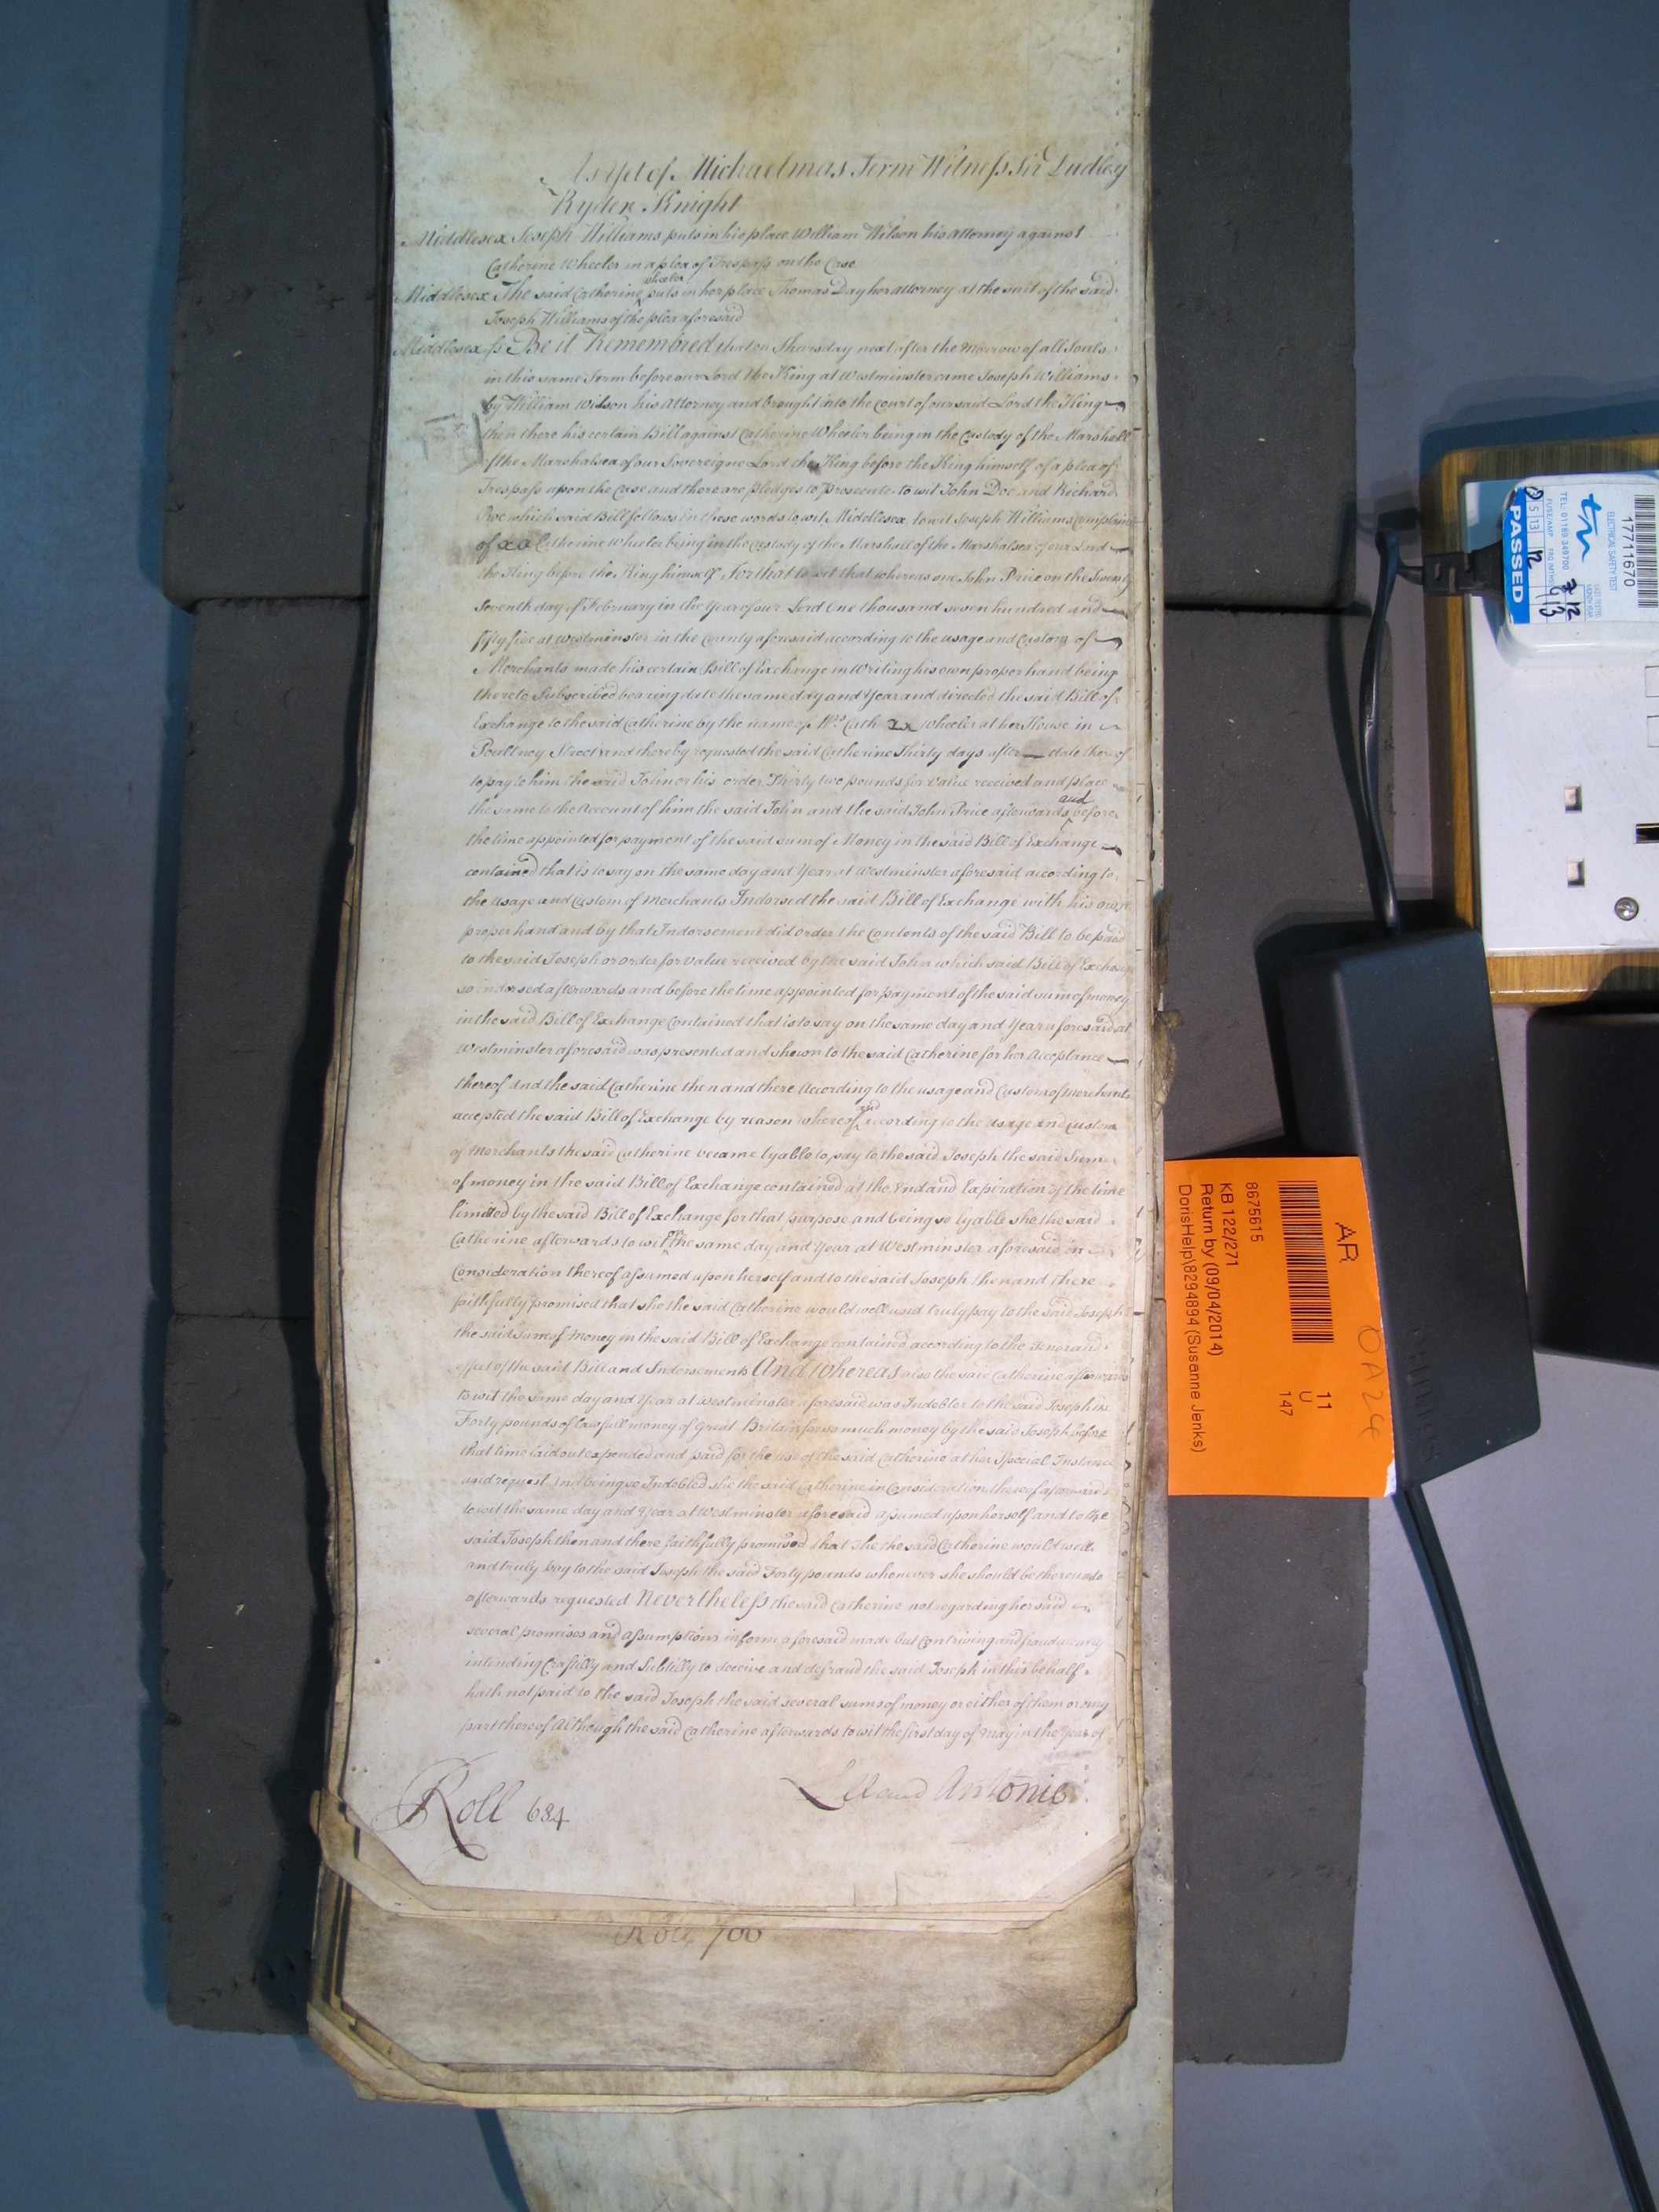 As Yet of Michaelmas Term Witness Sir Dudley
Ryder Knight
Middlesex Joseph Williams puts in his place William Wilson his Attorney against
Catherine Wheeler in a plea of Trespass on the Case
Middlesex The said Catherine wheeler puts in her place Thomas Day her attorney at the suit of the said
Joseph Williams of the plea aforesaid
Middlesex ss Be it Remembred that on Thursday next after the Morrow of all Souls
in this same Term before our Lord the King at Westminster came Joseph Williams
by William Wilson his Attorney and brought into the Court of our said Lord the King
then there his certain Bill against Catherine Wheeler being in the Custody of the Marshall
of the Marshalsea of our Sovereigne Lord the King before the King himself of a plea of
Trespass upon the Case and there are pledges to prosecute to wit John Doe and Richard
Roe which said Bill follows in these words to wit Middlesex to wit Joseph Williams complains
of Catherine Wheeler being in the Custody of the Marshall of the Marshalsea of our Lord
the King before the King himself For that to wit that whereas one John Price on the Twenty
Seventh day of February in the Year of our Lord One thousand seven hundred and
fifty five at Westminster in the County aforesaid according to the usage and Custom of
Merchants made his certain Bill of Exchange in Writing his own proper hand being
thereto Subscribed bearing date the same day and Year and directed the said Bill of
Exchange to the said Catherine by the name of Mrs Cath Wheeler at her House in
Poultney Street and thereby requested the said Catherine Thirty days after date thereof
to pay to him the said John or his order Thirty two pounds for value received and place
the same to the Account of him the said John and the said John Price afterwards and before
the time appointed for payment of the said sum of Money in the said Bill of Exchange
contained that is to say on the same day and Year at Westminster aforesaid according to
the usage and Custom of Merchants Indorsed the said Bill of Exchange with his own
proper hand and by that Indorsement did order the Contents of the said Bill to be paid
to the said Joseph or order for value received by the said John which said Bill of Exchange
so indorsed afterwards and before the time appointed for payment of the said sum of money
in the said Bill of Exchange Contained that is to say on the same day and Year aforesaid at
Westminster aforesaid was presented and shewn to the said Catherine for her Acceptance
thereof And the said Catherine then and there According to the usage and Custom of Merchants
accepted the said Bill of Exchange by reason whereof and according to the usage and Custom
of Merchants the said Catherine became lyable to pay to the said Joseph the said Sum
of money in the said Bill of Exchange contained at the End and Expiration of the time
limited by the said Bill of Exchange for that purpose and being so lyable she the said
Catherine afterwards to wit the same day and Year at Westminster aforesaid in
Consideration thereof assumed upon herself and to the said Joseph then and there
faithfully promised that she the said Catherine would well and truly pay to the said Joseph
the said Sum of Money in the said Bill of Exchange contained according to the Tenor and
effect of the said Bill and Indorsement And whereas also the said Catherine afterwards
to wit the same day and Year at Westminster aforesaid was Indebted to the said Joseph in
Forty pounds of lawfull money of Great Britain for so much money by the said Joseph before
that time laid out expended and paid for the use of the said Catherine at her Special Instance
and request And being so Indebted she the said Catherine in Consideration thereof afterwards
to wit the same day and Year at Westminster aforesaid assumed upon herself and to the
said Joseph then and there faithfully promised that she the said Catherine would well
and truly pay to the said Joseph the said Forty pounds whenever she should be thereunto
afterwards requested Nevertheless the said Catherine not regarding her said
several promises and assumptions in form aforesaid made but Contriving and fraudulently
intending Craftilly and Subtilly to deceive and defraud the said Joseph in this behalf
hath not paid to the said Joseph the said several sums of money or either of them or any
part thereof Although the said Catherine afterwards to wit the first day of May in the Year of
Roll 684
Antonie
Roll 700
AR
8675615
KB 122/271
Return by (09/04/2014)
DorisHelp\8294894 (Susanne Jenks)
11
U
147
17711670
ELECTRICAL SAFETY TEST
TEL: 01189 349700
PASSED